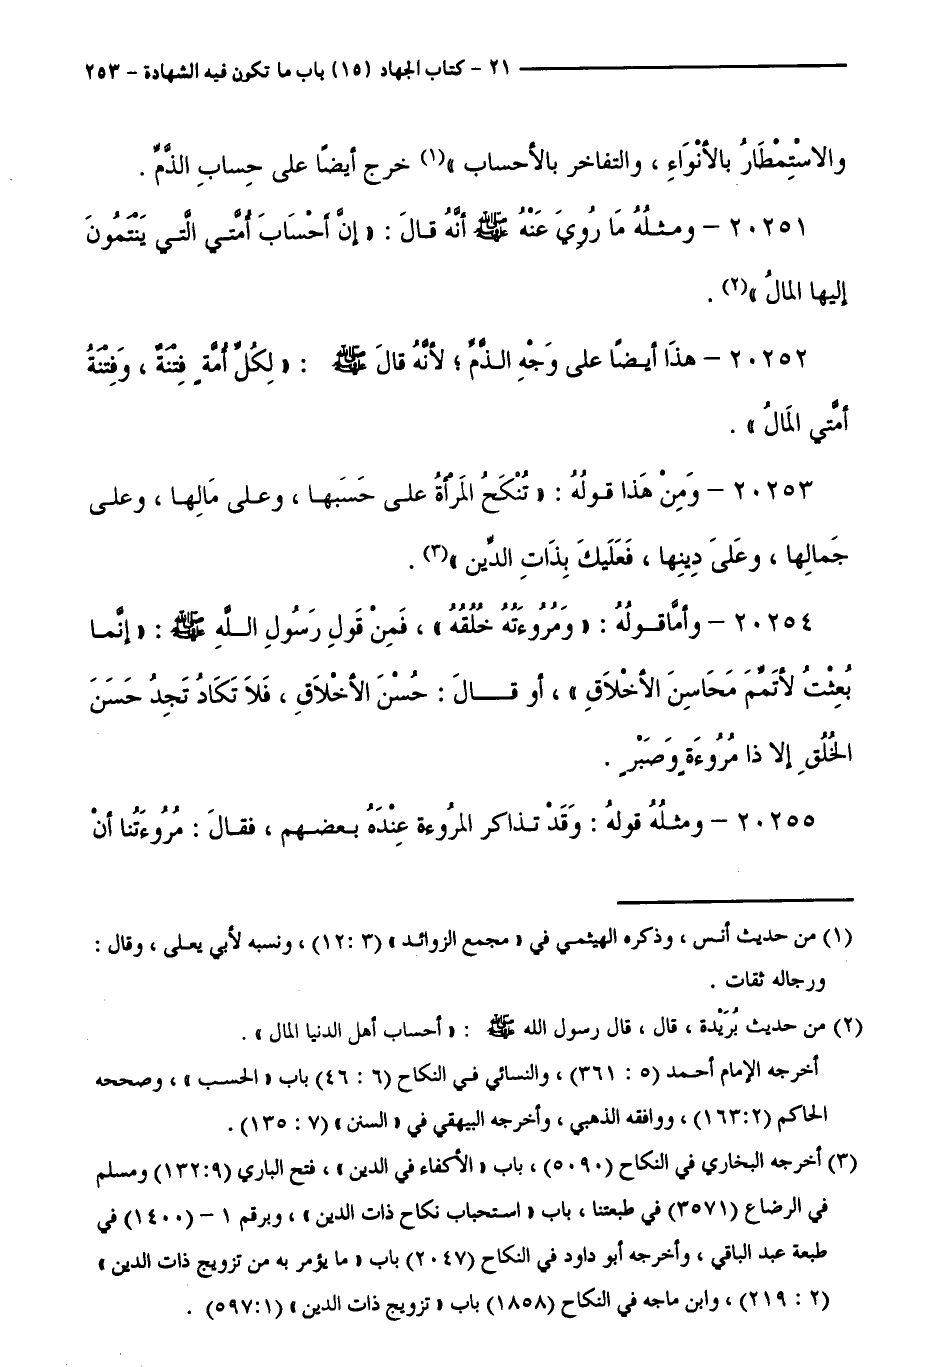 ٢١ - كتاب الجهاد (١٥) باب ما تكون فيه الشهادة - ٢٥٣
والاسْتِمْطَارُ بالأنْوَاءِ ، والتفاخر بالأحساب »(١) خرج أيضًا على حِسابِ الذَّمِّ .
٢٠٢٥١ - ومثلُهُ مَا رُوِيَ عَنْهُ ﷺ أنَّهُ قالَ : « إنَّ أحْسَابَ أُمَّتي الَّتي يَنْتَمُونَ
إليها المالُ »(٢) .
٢٠٢٥٢ - هذَا أيضًا على وَجْهِ الذَّمِّ ؛ لأنَّهُ قالَ ﷺ : « لِكُلِّ أُمَّةٍ فِتنَةٌ ، وَفِتْنَةُ
أمَّتي المَالُ » .
٢٠٢٥٣ - وَمِنْ هَذا قولُهُ : « تُنْكَحُ المَرْأةُ على حَسَبها ، وعلى مَالِها ، وعلى
جَمالِها ، وعَلىَ دِينِها ، فَعَلَيكَ بِذَاتِ الدِّين »(٣) .
٢٠٢٥٤ - وأمَّاقولُهُ : « وَمُرُوءَتُهُ خُلُقُهُ » ، فَمِنْ قَولِ رَسُولِ اللَّهِ ﷺ : « إنَّما
بُعِثْتُ لأتَمِّمَ مَحَاسِنَ الأخْلَاقِ » ، أو قالَ : حُسْنَ الأخْلَاقِ ، فَلاَ تَكَادُ تَجِدُ حَسَنَ
الخُلُقِ إلا ذا مُرُوءَةٍ وَصَبْرٍ .
٢٠٢٥٥ - ومثلُهُ قولهُ : وَقَدْ تذاكر المرُوءة عِنْدَهُ بعضهم ، فقالَ : مُرُوءَتُنا أنْ
(١) من حديث أنس ، وذكره الهيثمي في « مجمع الزوائد » (٣ :١٢) ، ونسبه لأبي يعلى ، وقال :
ورجاله ثقات .
(٢) من حديث بُرَيْدة ، قال ، قال رسول الله ﷺ : « أحساب أهل الدنيا المال » .
أخرجه الإمام أحمد (٥ : ٣٦١) ، والنسائي في النكاح (٦ : ٤٦) باب « الحسب » ، وصححه
الحاكم (١٦٣:٢) ، ووافقه الذهبي ، وأخرجه البيهقي في « السنن » (٧ : ١٣٥) .
(٣) أخرجه البخاري في النكاح (٥٠٩٠) ، باب « الأكفاء في الدين » ، فتح الباري (١٣٢:٩) ومسلم
في الرضاع (٣٥٧١) في طبعتنا ، باب « استحباب نكاح ذات الدين » ، وبرقم ١ - (١٤٠٠) في
طبعة عبد الباقي ، وأخرجه أبو داود في النكاح (٢٠٤٧) باب « ما يؤمر به من تزويج ذات الدين »
(٢ : ٢١٩) ، وابن ماجه في النكاح (١٨٥٨) باب « تزويج ذات الدين » (٥٩٧:١) .